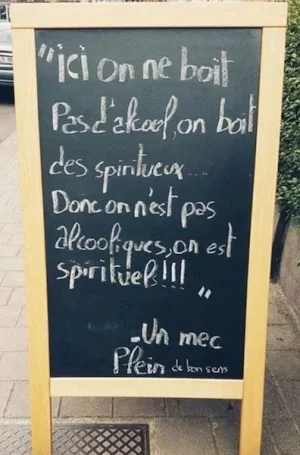 "ici on ne boit
Pas d'alcool, on boit
des spiritueux
Donc on n'est pas
alcooliques, on est
spirituels!!!
"
-Un mec
Plein de bon sens